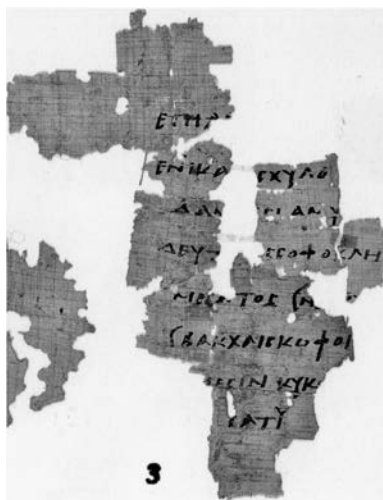 ΕΠΙ ΑΡ
ΕΝΙΚΑ ϹΧΥΛΟ
ΔΑΝ ϹΙ ΑΜΥ
ΔΕΥΤ ϹϹΟΦΟΚΛΗ
ΜΕϹΑΤΟϹ
ΒΑΚΧΑΙϹΚΩΦΟΙ
ΕϹΙΝ ΚΥΚ
ϹΑΤΥ
3